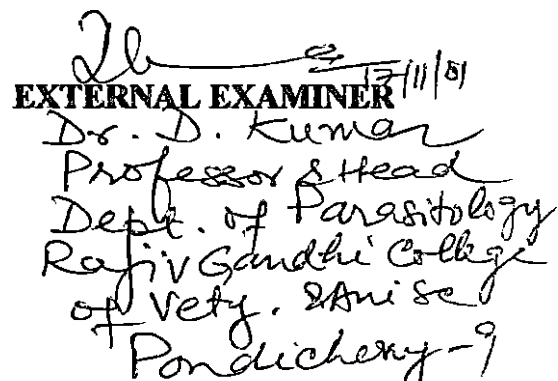 17/11/01
EXTERNAL EXAMINER
Dr. D. Kumar
Professor & Head
Dept. of Parasitology
Rajiv Gandhi College
of Vety. & Ani Sc
Pondicherry-9